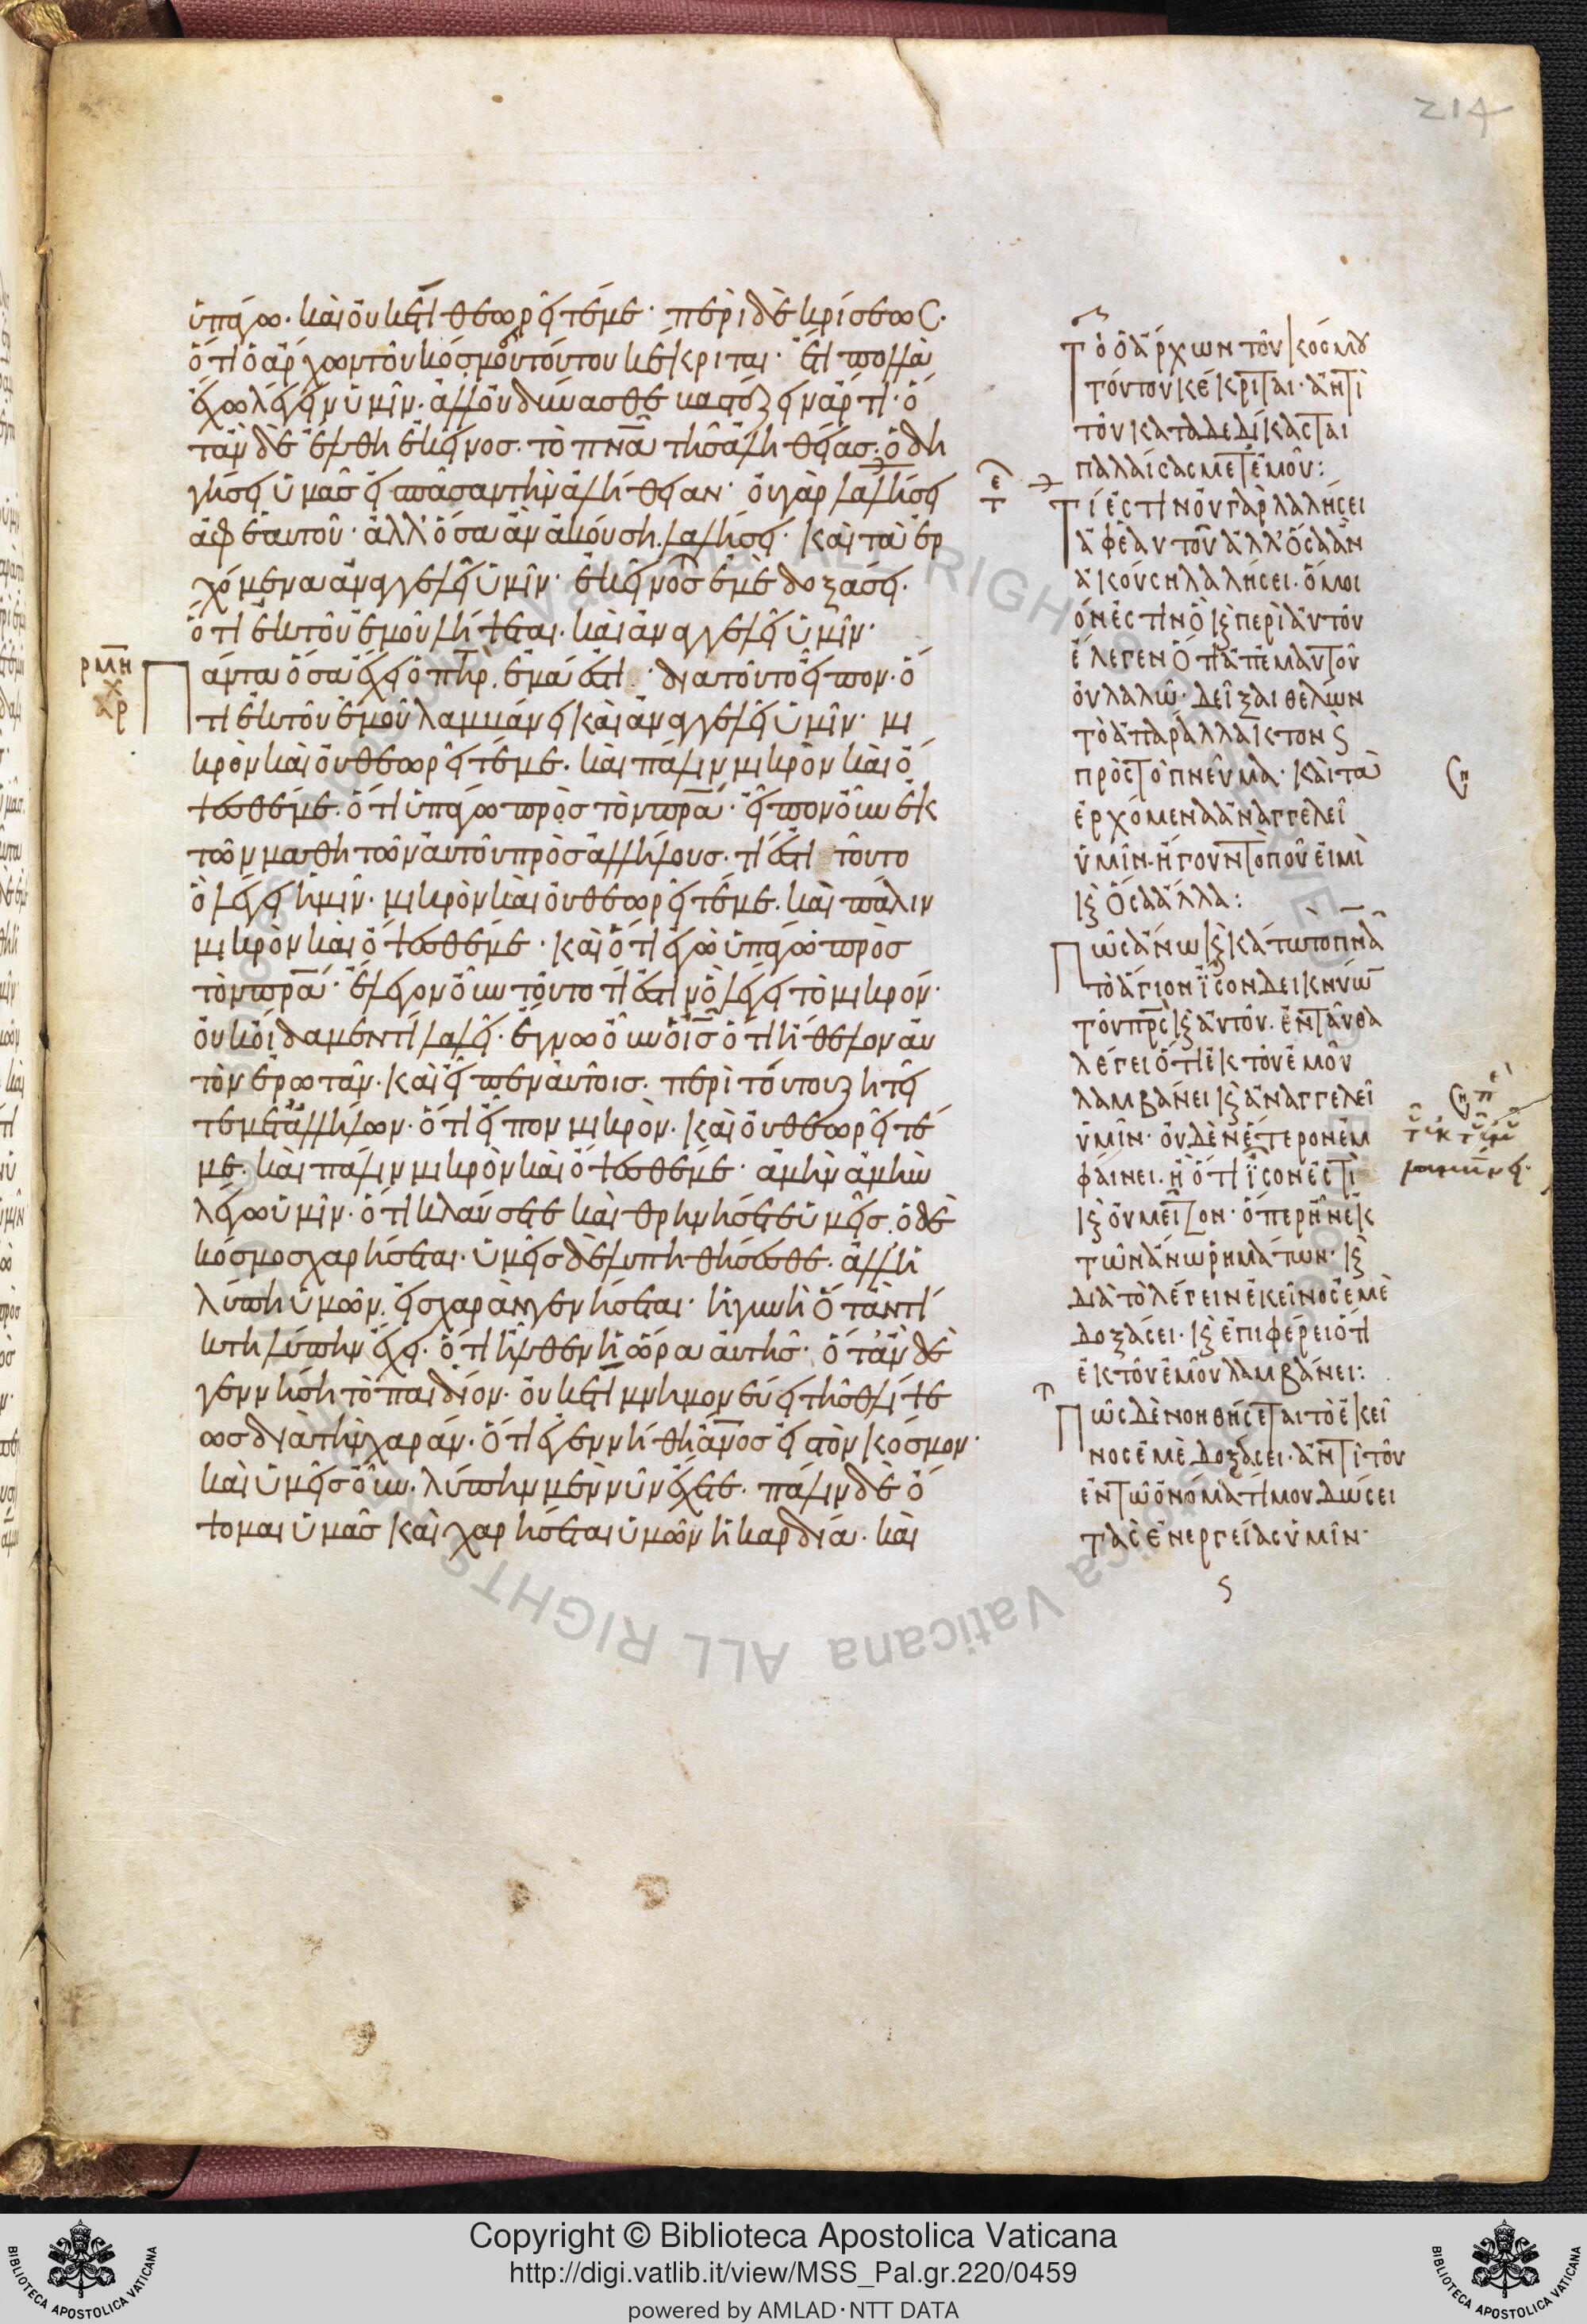 214
ὑπάγω· καὶ οὐκέτι θεωρεῖτέ με· περὶ δὲ κρίσεως·
ὅτι ὁ ἄρχων τοῦ κόσμου τούτου κέκριται· ἔτι πολλὰ
ἔχω λέγειν ὑμῖν· ἀλλ' οὐ δύνασθε βαστάζειν ἄρτι· ὅ
ταν δὲ ἔλθη ἐκεῖνος· τὸ πνα τῆς ἀληθείας· ὁδη
γήσει ὑμᾶς εἰς πᾶσαν τὴν ἀλήθειαν· οὐ γὰρ λαλήσει
ἀφ' ἑαυτοῦ· ἀλλ' ὅσα ἂν ἀκούση λαλήσει· καὶ τὰ ἐρ
χόμενα ἀναγγελεῖ ὑμῖν· ἐκεῖνος ἐμὲ δοξάσει·
ὅτι ἐκ τοῦ ἐμοῦ λήψεται· καὶ ἀναγγελεῖ ὑμῖν·
ρμη
Πάντα ὅσα ἔχει ὁ πηρ, ἐμά ἐστι· διὰ τοῦτο εἶπον· ὅ
τι ἐκ τοῦ ἐμοῦ λαμβάνει καὶ ἀναγγελεῖ ὑμῖν· μι
κρὸν καὶ οὐ θεωρεῖτέ με· καὶ πάλιν μικρὸν καὶ ὄ
ψεσθέ με· ὅτι ὑπάγω πρὸς τὸν πρα· εἶπον οὖν ἐκ
τῶν μαθητῶν αὐτοῦ πρὸς ἀλλήλους· τί ἐστι τοῦτο
ὃ λέγει ἡμῖν· μικρὸν καὶ οὐ θεωρεῖτέ με· καὶ πάλιν
μικρὸν καὶ ὄψεσθέ με· καὶ ὅτι ἐγὼ ὑπάγω πρὸς
τὸν πρα· ἔλεγον οὖν τοῦτο τί ἐστιν ὃ λέγει τὸ μικρόν·
οὐκ οἴδαμεν τί λαλεῖ· ἔγνω οὖν ὁ ις ὅτι ἤθελον αὐ
τὸν ἐρωτᾶν· καὶ εἶπεν αὐτοῖς· περὶ τούτου ζητεῖ
τε μετ' ἀλλήλων· ὅτι εἶπον μικρὸν· καὶ οὐ θεωρεῖτέ
με· καὶ πάλιν μικρὸν καὶ ὄψεσθέ με· ἀμὴν ἀμὴν
λέγω ὑμῖν· ὅτι κλαύσετε καὶ θρηνήσετε ὑμεῖς· ὁ δὲ
κόσμος χαρήσεται· ὑμεῖς δὲ λυπηθήσεσθε· ἀλλ' ἡ
λύπη ὑμῶν, εἰς χαρὰν γενήσεται· ἡ γυνὴ ὅταν τί
κτη λύπην ἔχει· ὅτι ἦλθεν ἡ ὥρα αὐτῆς· ὅταν δὲ
γεννήση τὸ παιδίον· οὐκέτι μνημονεύει τῆς θλίψε
ως διὰ τὴν χαράν· ὅτι ἐγεννήθη ἄνος εἰς τὸν κόσμον·
καὶ ὑμεῖς οὖν· λύπην μὲν νῦν ἔχετε· πάλιν δὲ ὄ
ψομαι ὑμᾶς καὶ χαρήσεται ὑμῶν ἡ καρδία· καὶ
Τὸ ὁ ἄρχων τοῦ κόσμου
τούτου κέκριται· ἀντὶ
τοῦ καταδεδίκασται
παλαίσας μετ' ἐμοῦ:
Τί ἐστιν οὐ γὰρ λαλήσει
ἀφ' ἑαυτοῦ ἀλλ' ὅσα ἂν
ἀκούση λαλήσει· ὅμοι
όν ἐστιν ὃ καὶ περὶ αὐτοῦ
ἔλεγεν ὅτι ἀπ' ἐμαυτοῦ
οὐ λαλῶ· δεῖξαι θέλων
τὸ ἀπαράλλακτον ς
πρὸς τὸ πνεῦμα· καὶ τὰ
ἐρχόμενα ἀναγγελεῖ
ὑμῖν· ἤγουν τὸ ποῦ εἰμὶ
καὶ ὅσα ἄλλα:
Πῶς ἄνω καὶ κάτω τὸ πνα
τὸ ἅγιον ἴσον δεικνύων
τοῦ πρς καὶ αὐτοῦ· ἐνταῦθα
λέγει ὅτι ἐκ τοῦ ἐμοῦ
λαμβάνει καὶ ἀναγγελεῖ
ὑμῖν· οὐδὲν ἕτερον ἐμ
φαίνει· ἢ ὅτι ἴσον ἐστὶ
καὶ οὐ μεῖζον· ὅπερ ἦν ἐκ
τῶν ἄνω ῥημάτων· καὶ
διὰ τὸ λέγειν ἐκεῖνος ἐμὲ
δοξάσει· καὶ ἐπιφέρει ὅτι
ἐκ τοῦ ἐμοῦ λαμβάνει:
Πῶς δὲ νοηθήσεται τὸ ἐκεῖ
νος ἐμὲ δοξάσει· ἀντὶ τοῦ
ἐν τῶ ὀνόματί μου δώσει
τὰς ἐνεργείας ὑμῖν·
Copyright © Biblioteca Apostolica Vaticana
http://digi.vatlib.it/view/MSS_Pal.gr.220/0459
powered by AMLAD·NTT DATA
BIBLIOTECA APOSTOLICA VATICANA
BIBLIOTECA APOSTOLICA VATICANA